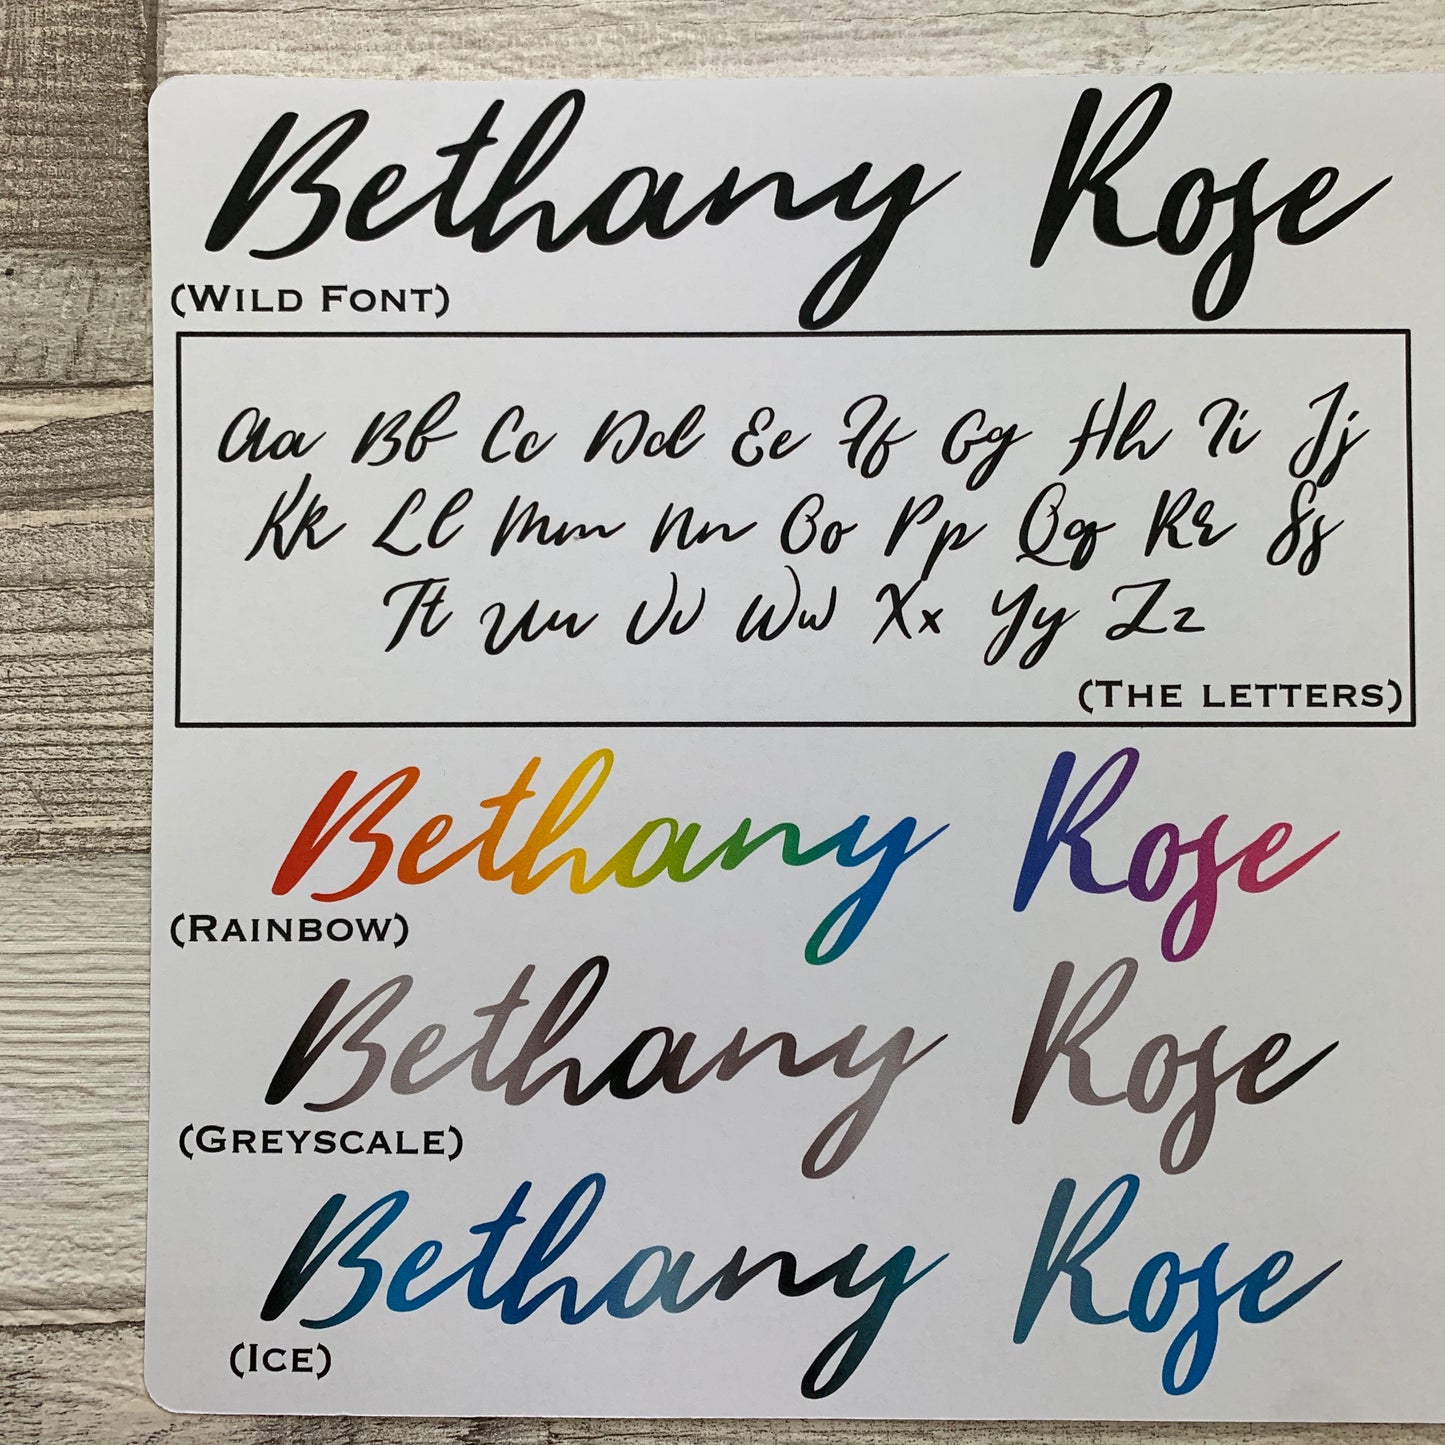 Bethany Rose
(Wild Font)
Aa Bb Cc Dd Ee Ff Gg Hh Ii Jj
Kk Ll Mm Nn Oo Pp Qq Rr Ss
Tt Uu Vv Ww Xx Yy Zz
(The letters)
Bethany Rose
(Rainbow)
Bethany Rose
(Greyscale)
Bethany Rose
(Ice)